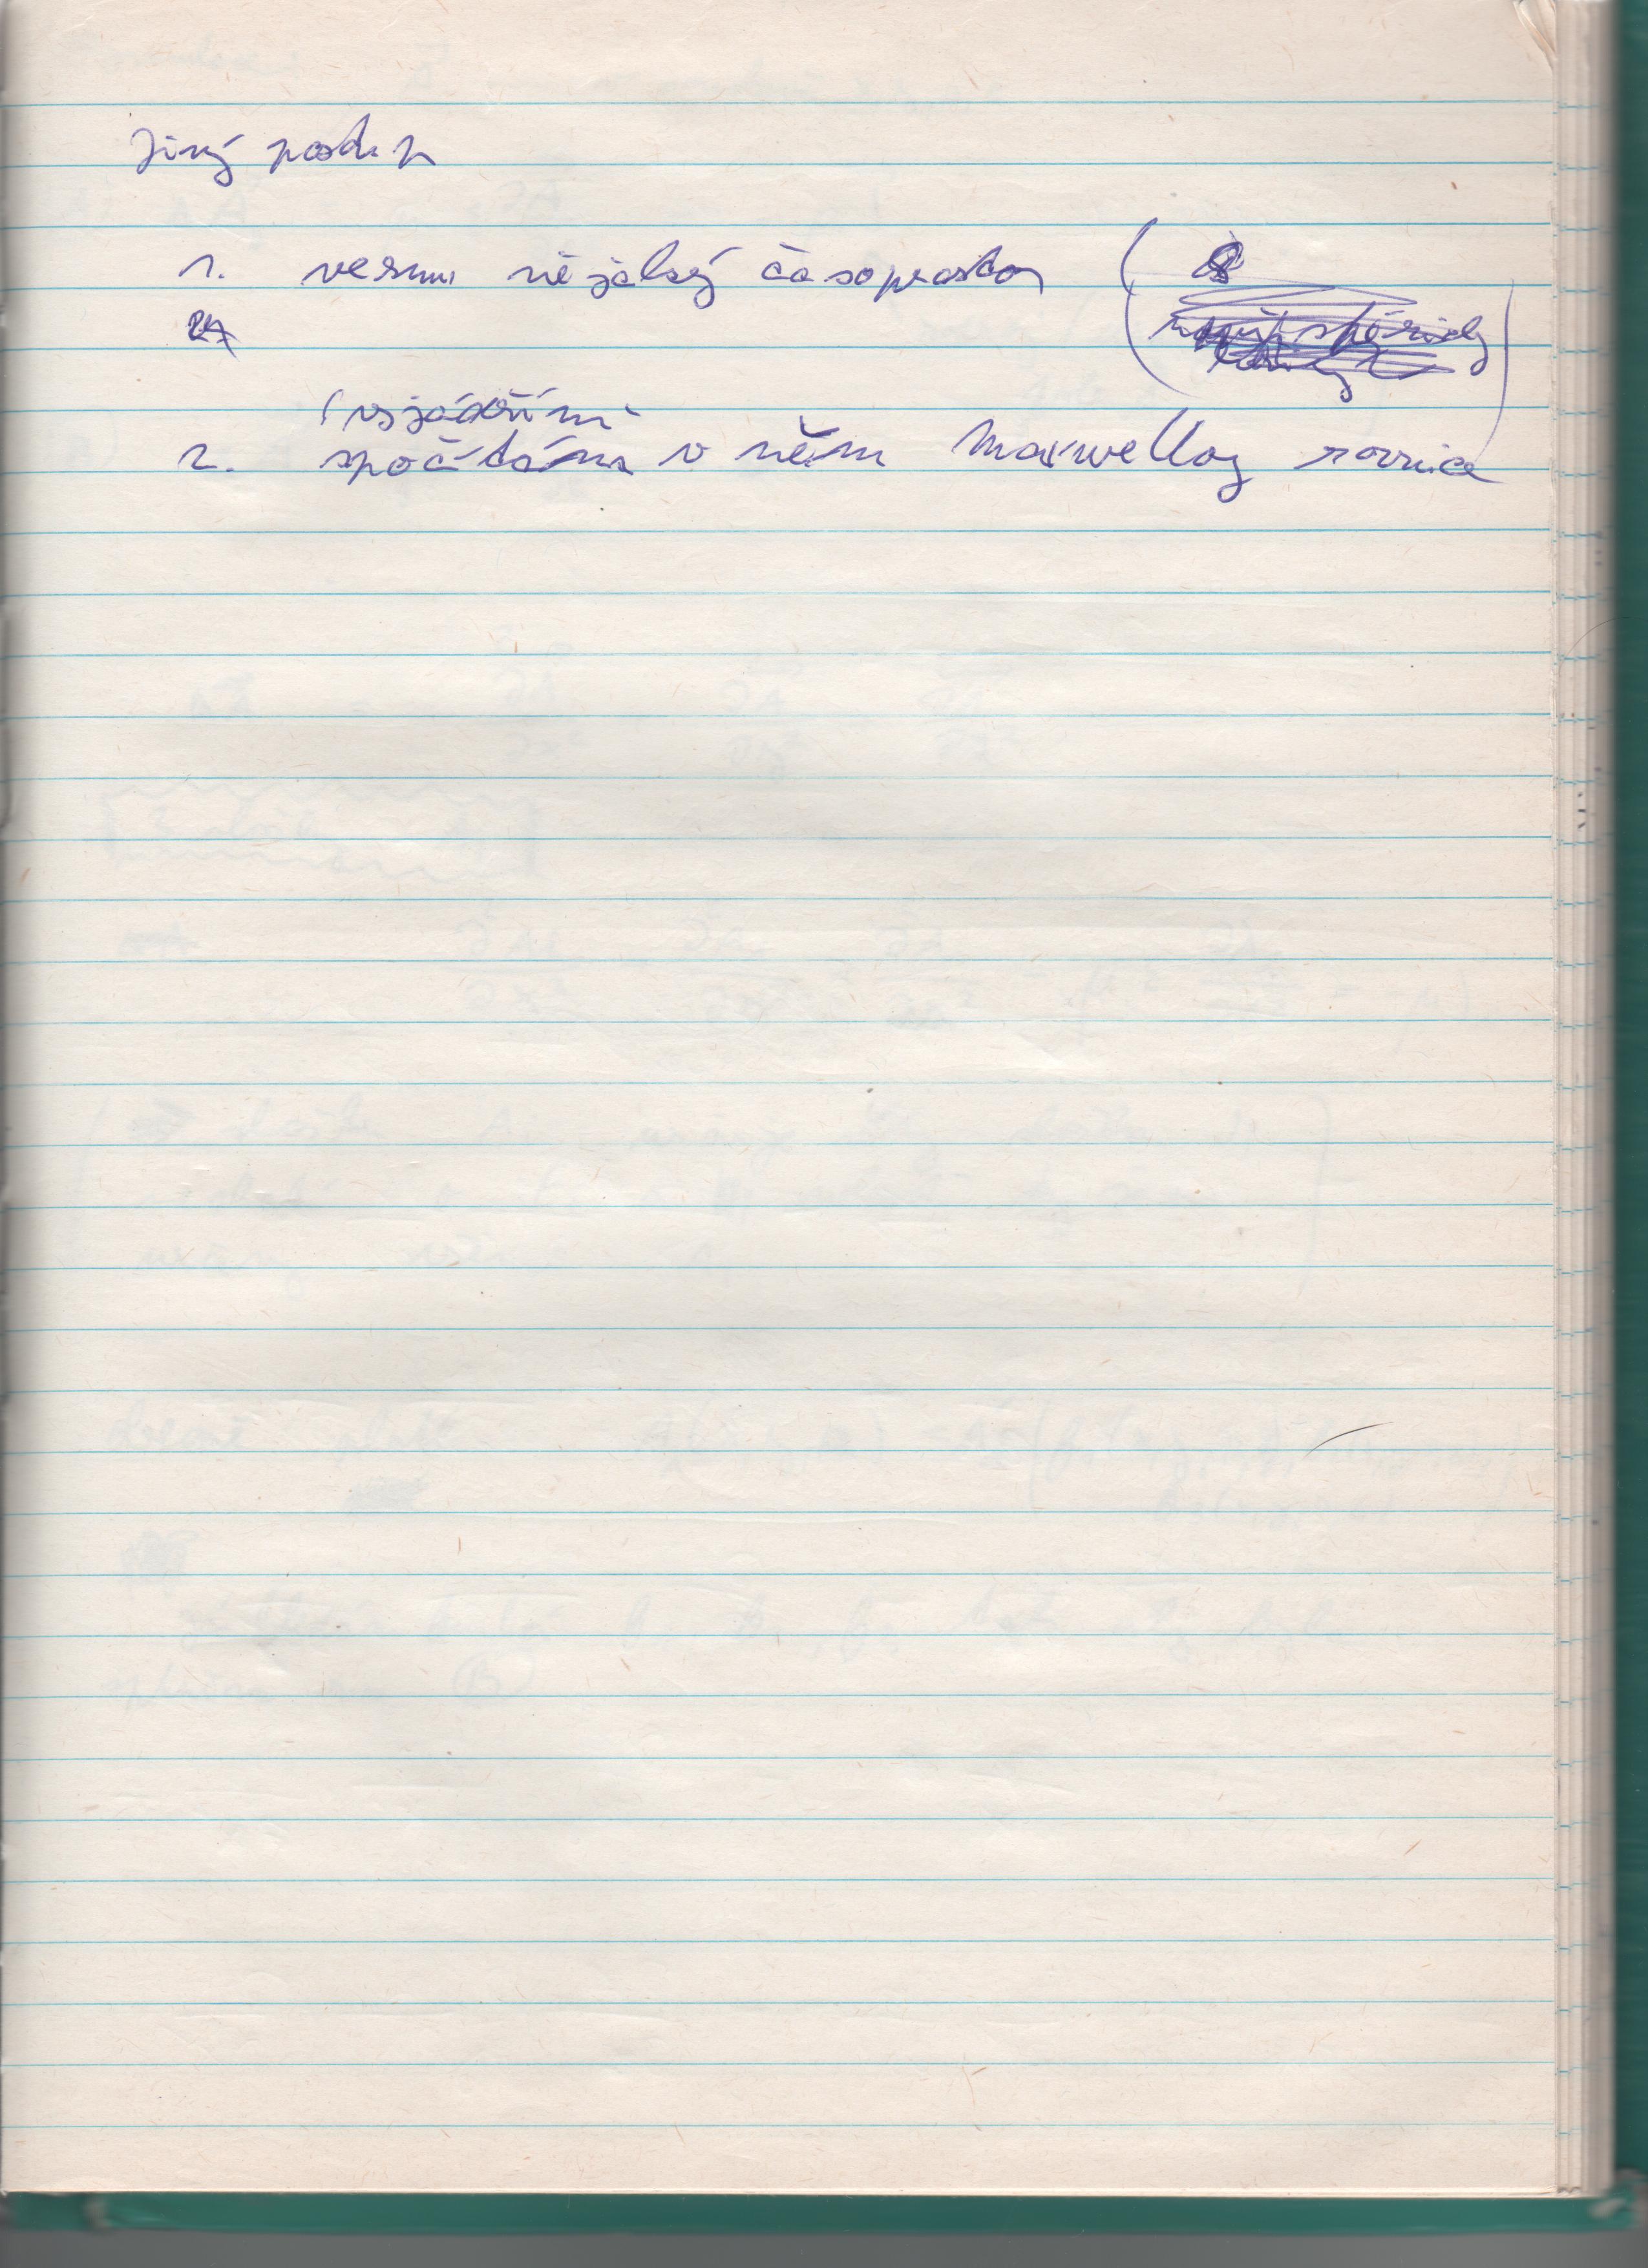 Jiný postup
1. vezmu nějaký časoprostor (
(vyjádřím
2. spočtám v něm Maxwellovy rovnice